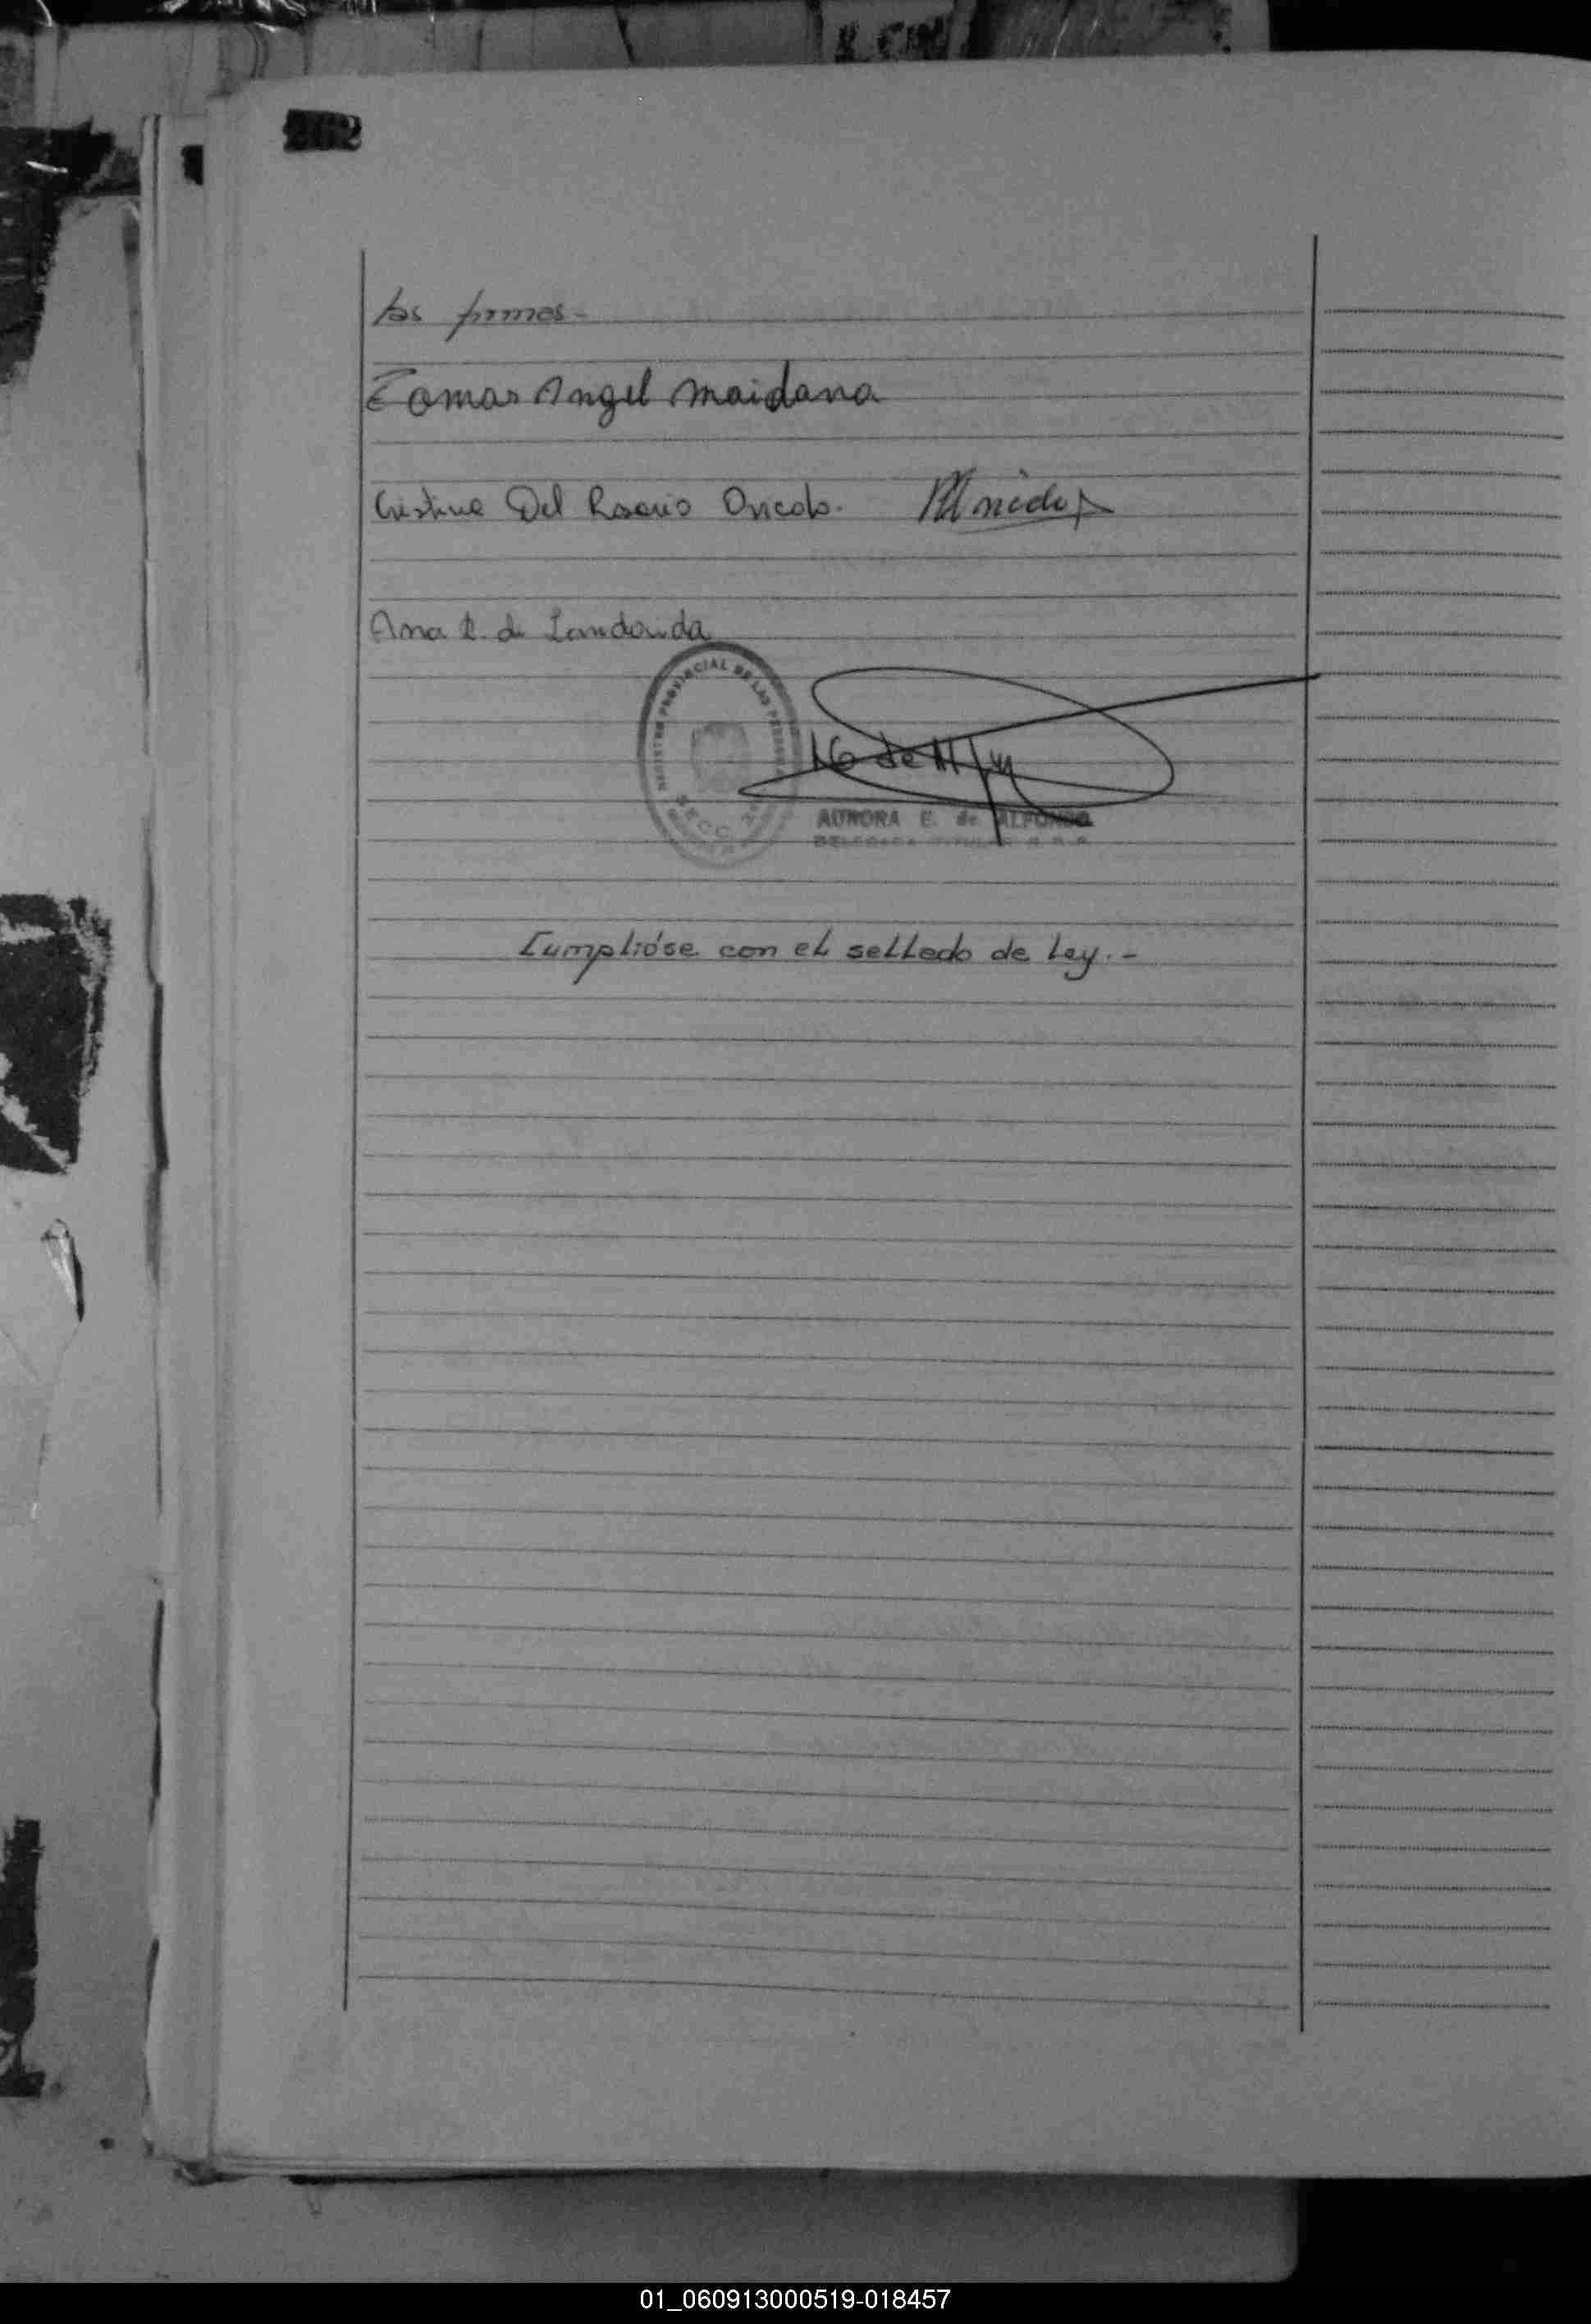 262
las firmas.-
Tomas Angel Maidana
Cristina Del Rosario Oviedo.
Ana R. de Landarida
REGISTRO PROVINCIAL DE LAS PERSONAS
SECC.
AURORA E. de ALFONSO
DELEGADA TITULAR R. P. P.
Cumplióse con el sellado de Ley.-
01_060913000519-018457